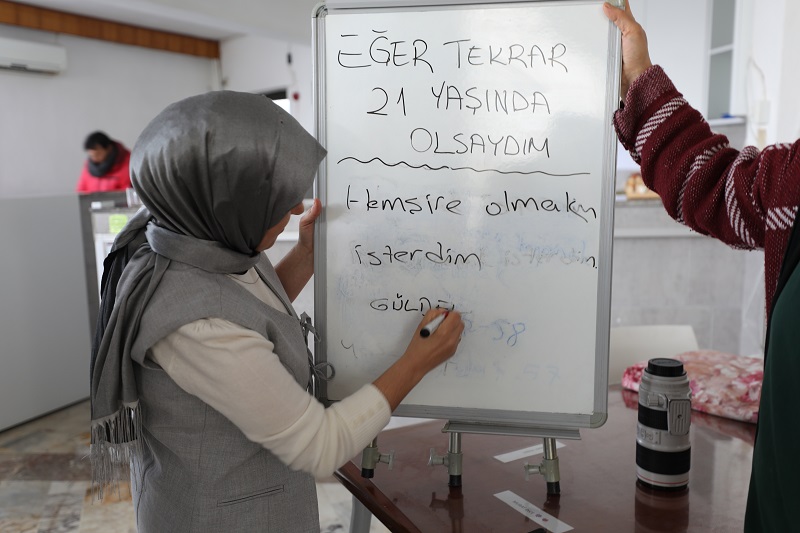 EĞER TEKRAR
21 YAŞINDA
OLSAYDIM
Hemşire olmak
isterdim
58